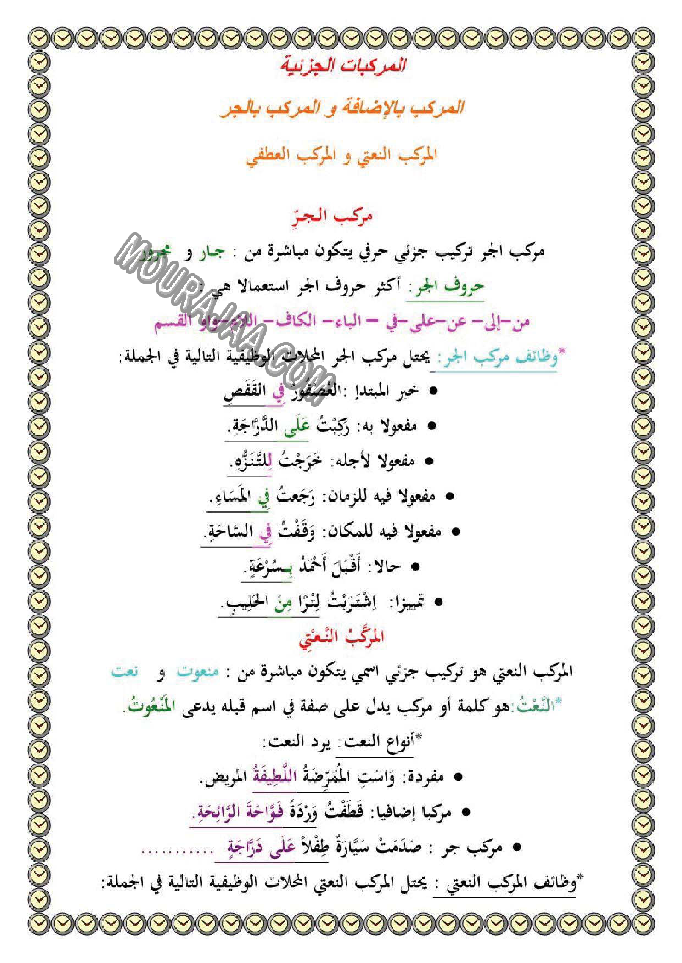 المركبات الجزئية
المركب بالإضافة و المركب بالجر
المركب النعتي و المركب العطفي
مركب الجرّ
مركب الجر تركيب جزئي حرفي يتكون مباشرة من : جار و مجرور
حروف الجر: أكثر حروف الجر استعمالا هي :
من-إلى- عن-على-في – الباء- الكاف- اللام-واو القسم
*وظائف مركب الجر: يحتل مركب الجر المحلات الوظيفية التالية في الجملة:
• خبر المبتدإ :العُصْفُورُ فِي القَفَصِ
• مفعولا به: رَكِبْتُ عَلَى الدَّرَّاجَةِ.
• مفعولا لأجله: خَرَجْتُ لِلتَّنَزُّهِ.
• مفعولا فيه للزمان: رَجَعتُ فِي المَسَاءِ.
• مفعولا فيه للمكان: وَقَفْتُ فِي السَّاحَةِ.
• حالا: أَقْبَلَ أَحْمَدُ بِسُرْعَةٍ.
• تمييزا: اِشْتَرَيْتُ لِتْرًا مِنَ الحَلِيبِ.
المُرَكَّبُ النَّعْتِي
المركب النعتي هو تركيب جزئي اسمي يتكون مباشرة من : منعوت و نعت
*النَّعْتُ:هو كلمة أو مركب يدل على صفة في اسم قبله يدعى المَنْعُوتُ.
*أنواع النعت: يرد النعت:
• مفردة: وَاسَتِ المُمَرِّضَةُ اللَّطِيفَةُ المريض.
• مركبا إضافيا: قَطَفْتُ وَرْدَةً فَوَّاحَةَ الرَّائِحَةِ.
• مركب جر : صَدَمَتْ سَيَّارَةٌ طِفْلاً عَلَى دَرَّاجَةٍ ...........
*وظائف المركب النعتي : يحتل المركب النعتي المحلات الوظيفية التالية في الجملة:
MOURAJAA.COM